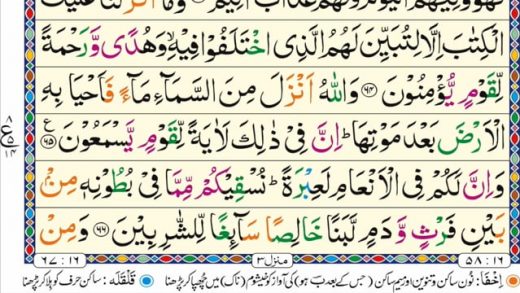 فَهُوَ وَلِيُّهُمُ الۡيَوۡمَ وَلَهُمۡ عَذَابٌ اَلِيۡمٌ ۝ وَمَاۤ اَنۡزَلۡنَا عَلَيۡكَ
الۡكِتٰبَ اِلَّا لِتُبَيِّنَ لَهُمُ الَّذِى اخۡتَلَفُوۡا فِيۡهِ ۙ وَهُدًى وَّرَحۡمَةً
لِّقَوۡمٍ يُّؤۡمِنُوۡنَ ۝۶۴ وَاللّٰهُ اَنۡزَلَ مِنَ السَّمَآءِ مَآءً فَاَحۡيَا بِهِ
الۡاَرۡضَ بَعۡدَ مَوۡتِهَا ؕ اِنَّ فِىۡ ذٰلِكَ لَاٰيَةً لِّقَوۡمٍ يَّسۡمَعُوۡنَ ۝۶۵ ع
۸ ع ۵ ۱۴
وَاِنَّ لَكُمۡ فِى الۡاَنۡعَامِ لَعِبۡرَةً ؕ نُسۡقِيۡكُمۡ مِّمَّا فِىۡ بُطُوۡنِهٖ مِنۡۢ
بَيۡنِ فَرۡثٍ وَّدَمٍ لَّبَنًا خَالِصًا سَآئِغًا لِّلشّٰرِبِيۡنَ ۝۶۶ وَمِنۡ
۵۸ : ۱۶ منزل ۳ ۶۷ : ۱۶
اِخفَا: نون ساکن و تنوین اور میم ساکن (جس کے بعد ب ہو) کی آواز کو خیشوم (ناک) میں چھپا کر پڑھنا • قَلقَلَہ: ساکن حرف کو ہلا کر پڑھنا